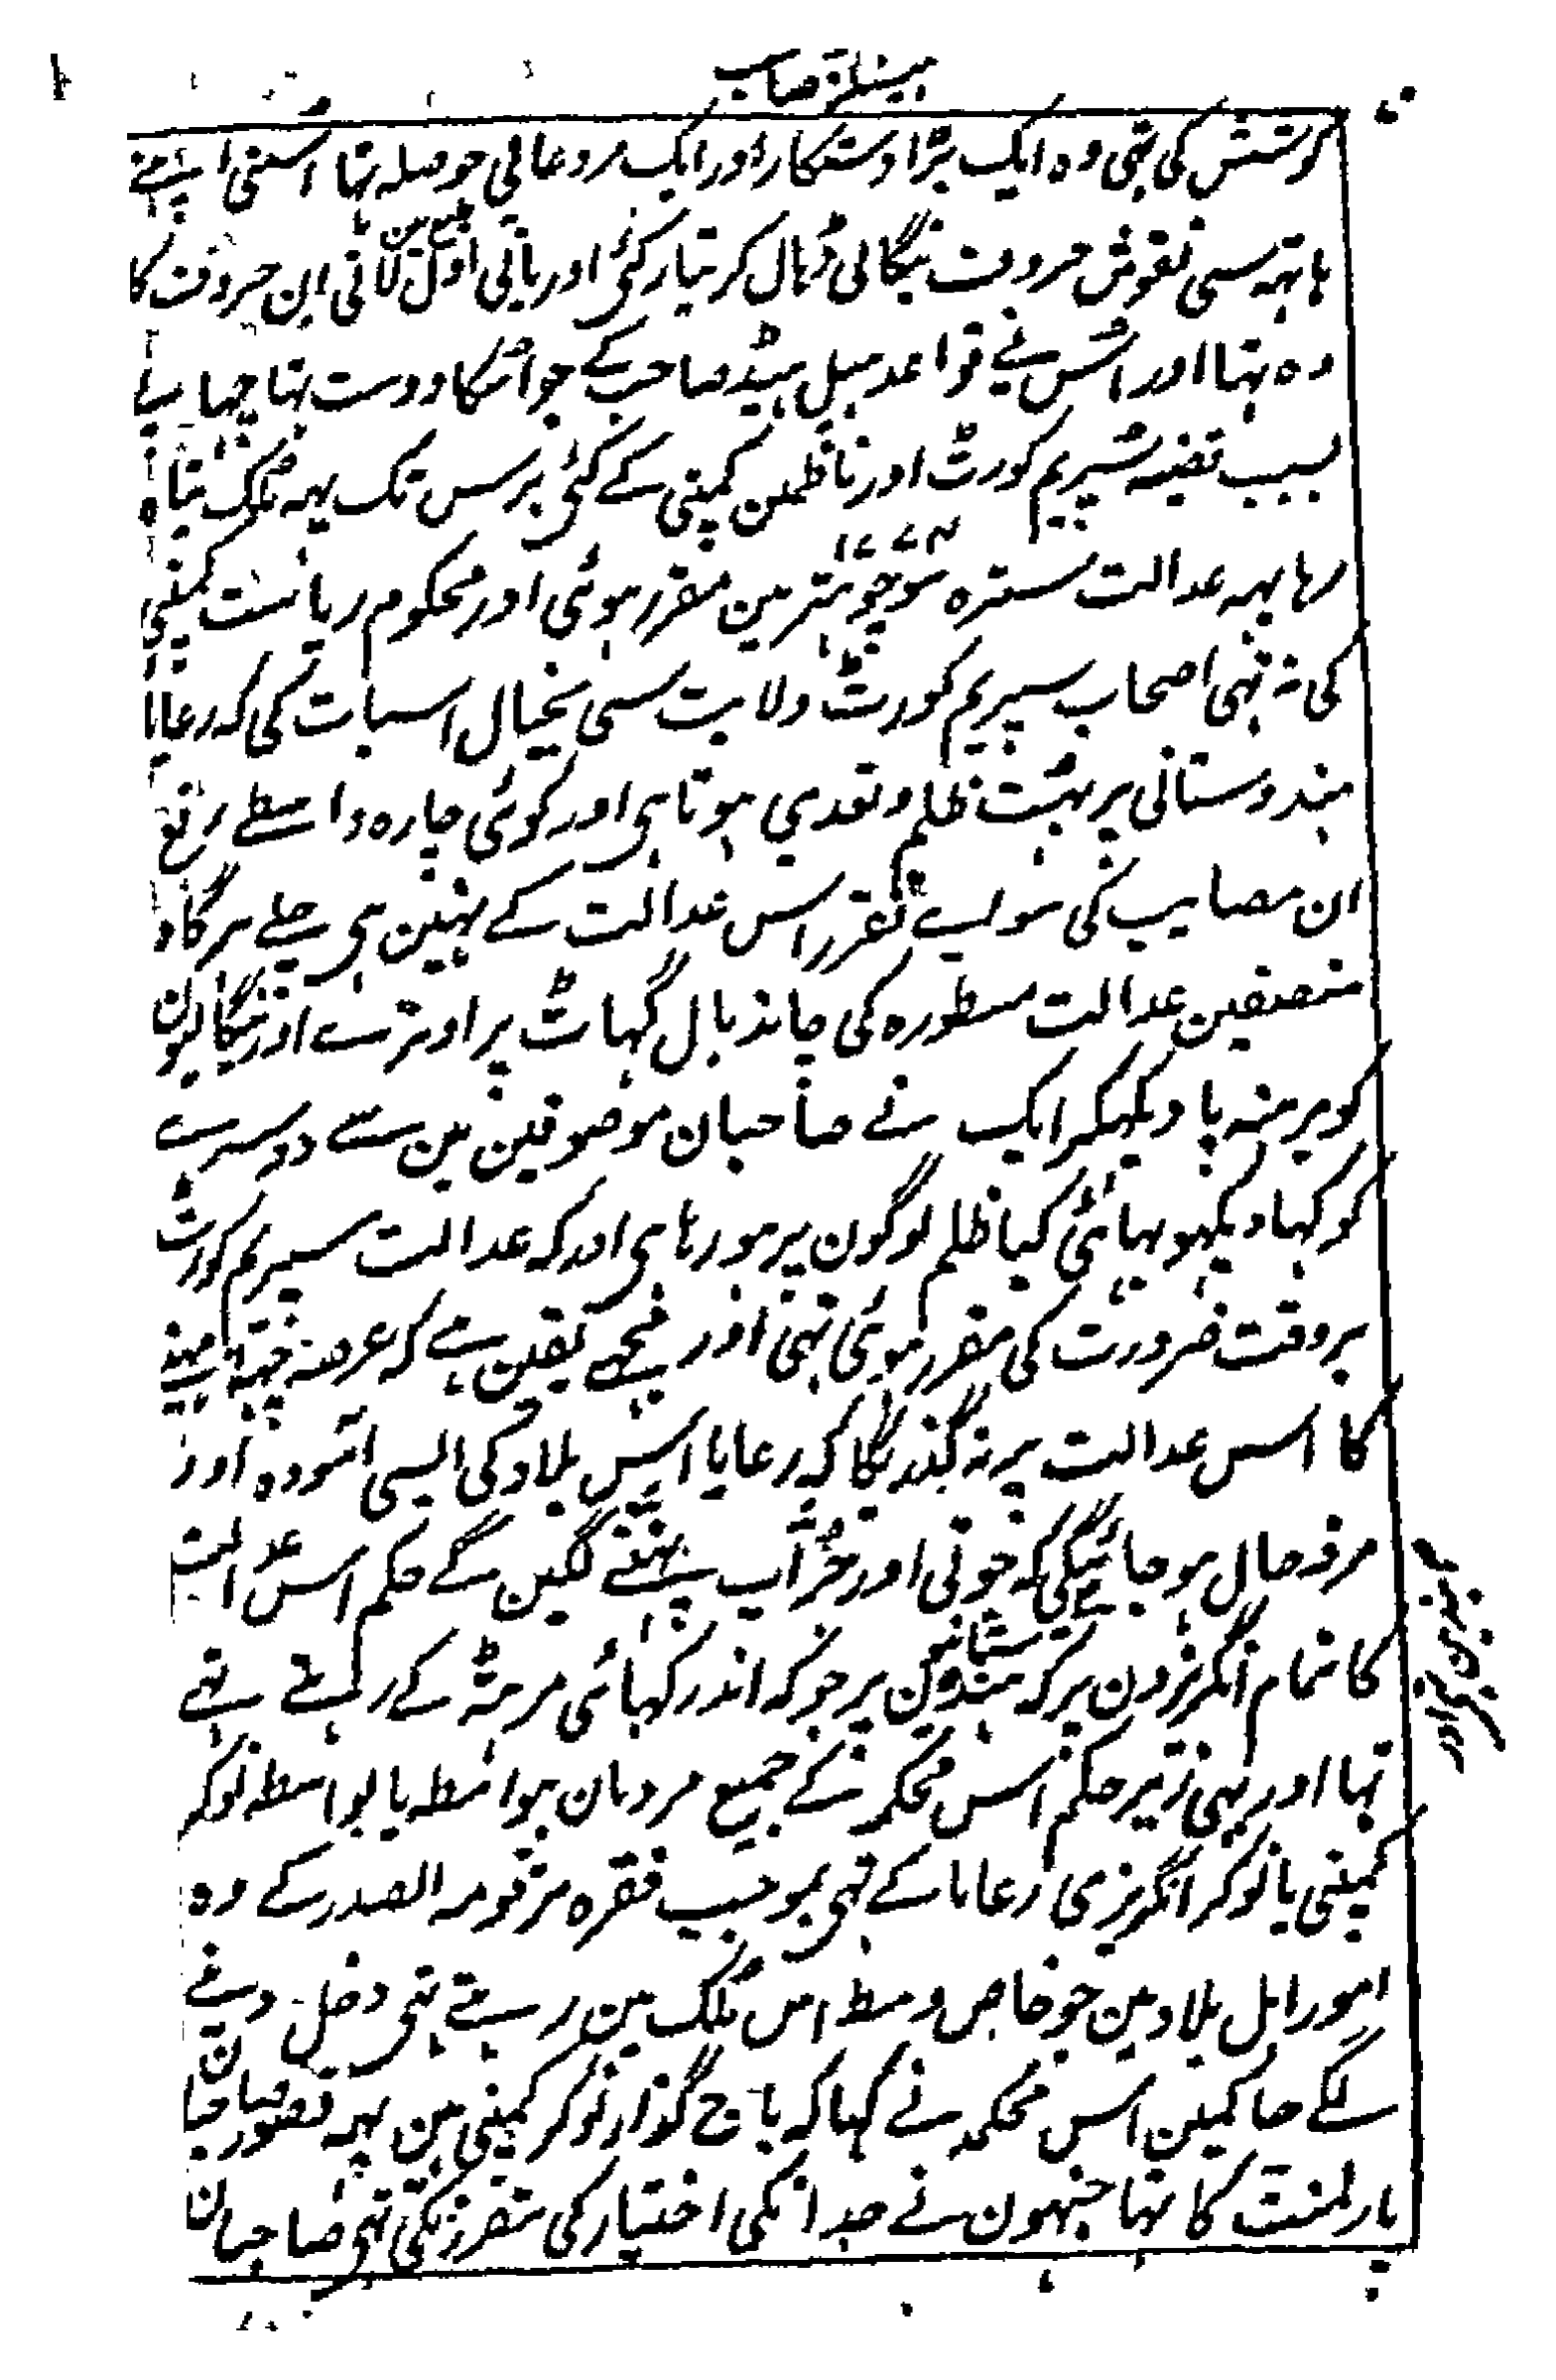 ہیسٹنگز صاحب
کوشش کی تھی وہ ایک بڑا دستکار اور ایک مرد عالی حوصلہ تہا اسنی اپنے
ہاتہہ سی نقوش حروف بنگالی ڈہال کر تیار کئی اور بانی اول ان حروف کا
وہ تہا اور اُس نے قواعد ہیل ہیڈ صاحب کے جو اُسکا دوست تہا چہاپے
بسبب قضیہ سُپریم کورٹ اور ناظمین کمپنی کے کئی برس تک یہہ مُلک تباہ
رہا یہہ عدالت سترہ سوچوہتر ۱۷۷۴ مین مقرر ہوئی اور محکوم ریاست کمپنی
کی نہ تہی اصحاب سپریم کورٹ ولایت سی بخیال اسبات کی کہ رعایا
ہندوستانی پر بہت ظلم و تعدی ہوتا ہی اور کوئی چارہ واسطے رفع
ان مصایب کی سوایے تقرر اس عدالت کے نہین ہی چلے ہرگاہ
منصفین عدالت مسطورہ کی چاندبال گہاٹ پر اوترے اور بنگالیون
کو برہنہ پا دیکہکر ایک نے صاحبان موصوفین مین سے دوسرے
کو کہا دیکہو بہائی کیا ظلم لوگون پر ہو رہا ہی اور کہ عدالت سپریم کورٹ
بروقت ضرورت کی مقرر ہوئی تہی اور مجہے یقین ہے کہ عرصہ چہہ مہینے
کا اس عدالت پر نہ گذریگا کہ رعایا اس بلاد کی ایسی آسودہ اور
مرفہ حال ہو جائیگی کہ جوتی اور جُرّاب پہننے لگین گے حکم اس عدالت
کا تمام انگریزون پر کہ ہندوستانیون پر جو کہ اندر کہائی مرہٹہ کے رہتے تہے
تہا اور بہی زیر حکم اس محکمہ کے جمیع مردمان بواسطہ یا بواسطہ نوکر
کمپنی یا نوکر انگریزی رعایا کے تہی بموجب فقرہ مرقومہ الصدر کے وہ
امور اہل بلاد مین جو خاص وسط اس مُلک مین رہتے تہی دخل دینے
لگے حاکمین اس محکمہ نے کہا کہ باج گذار نوکر کمپنی ہین یہہ قصور صاحبان
پارلمنٹ کا تہا جنہون نے حد انکی اختیار کی مقرر نکی تہی صاحبان